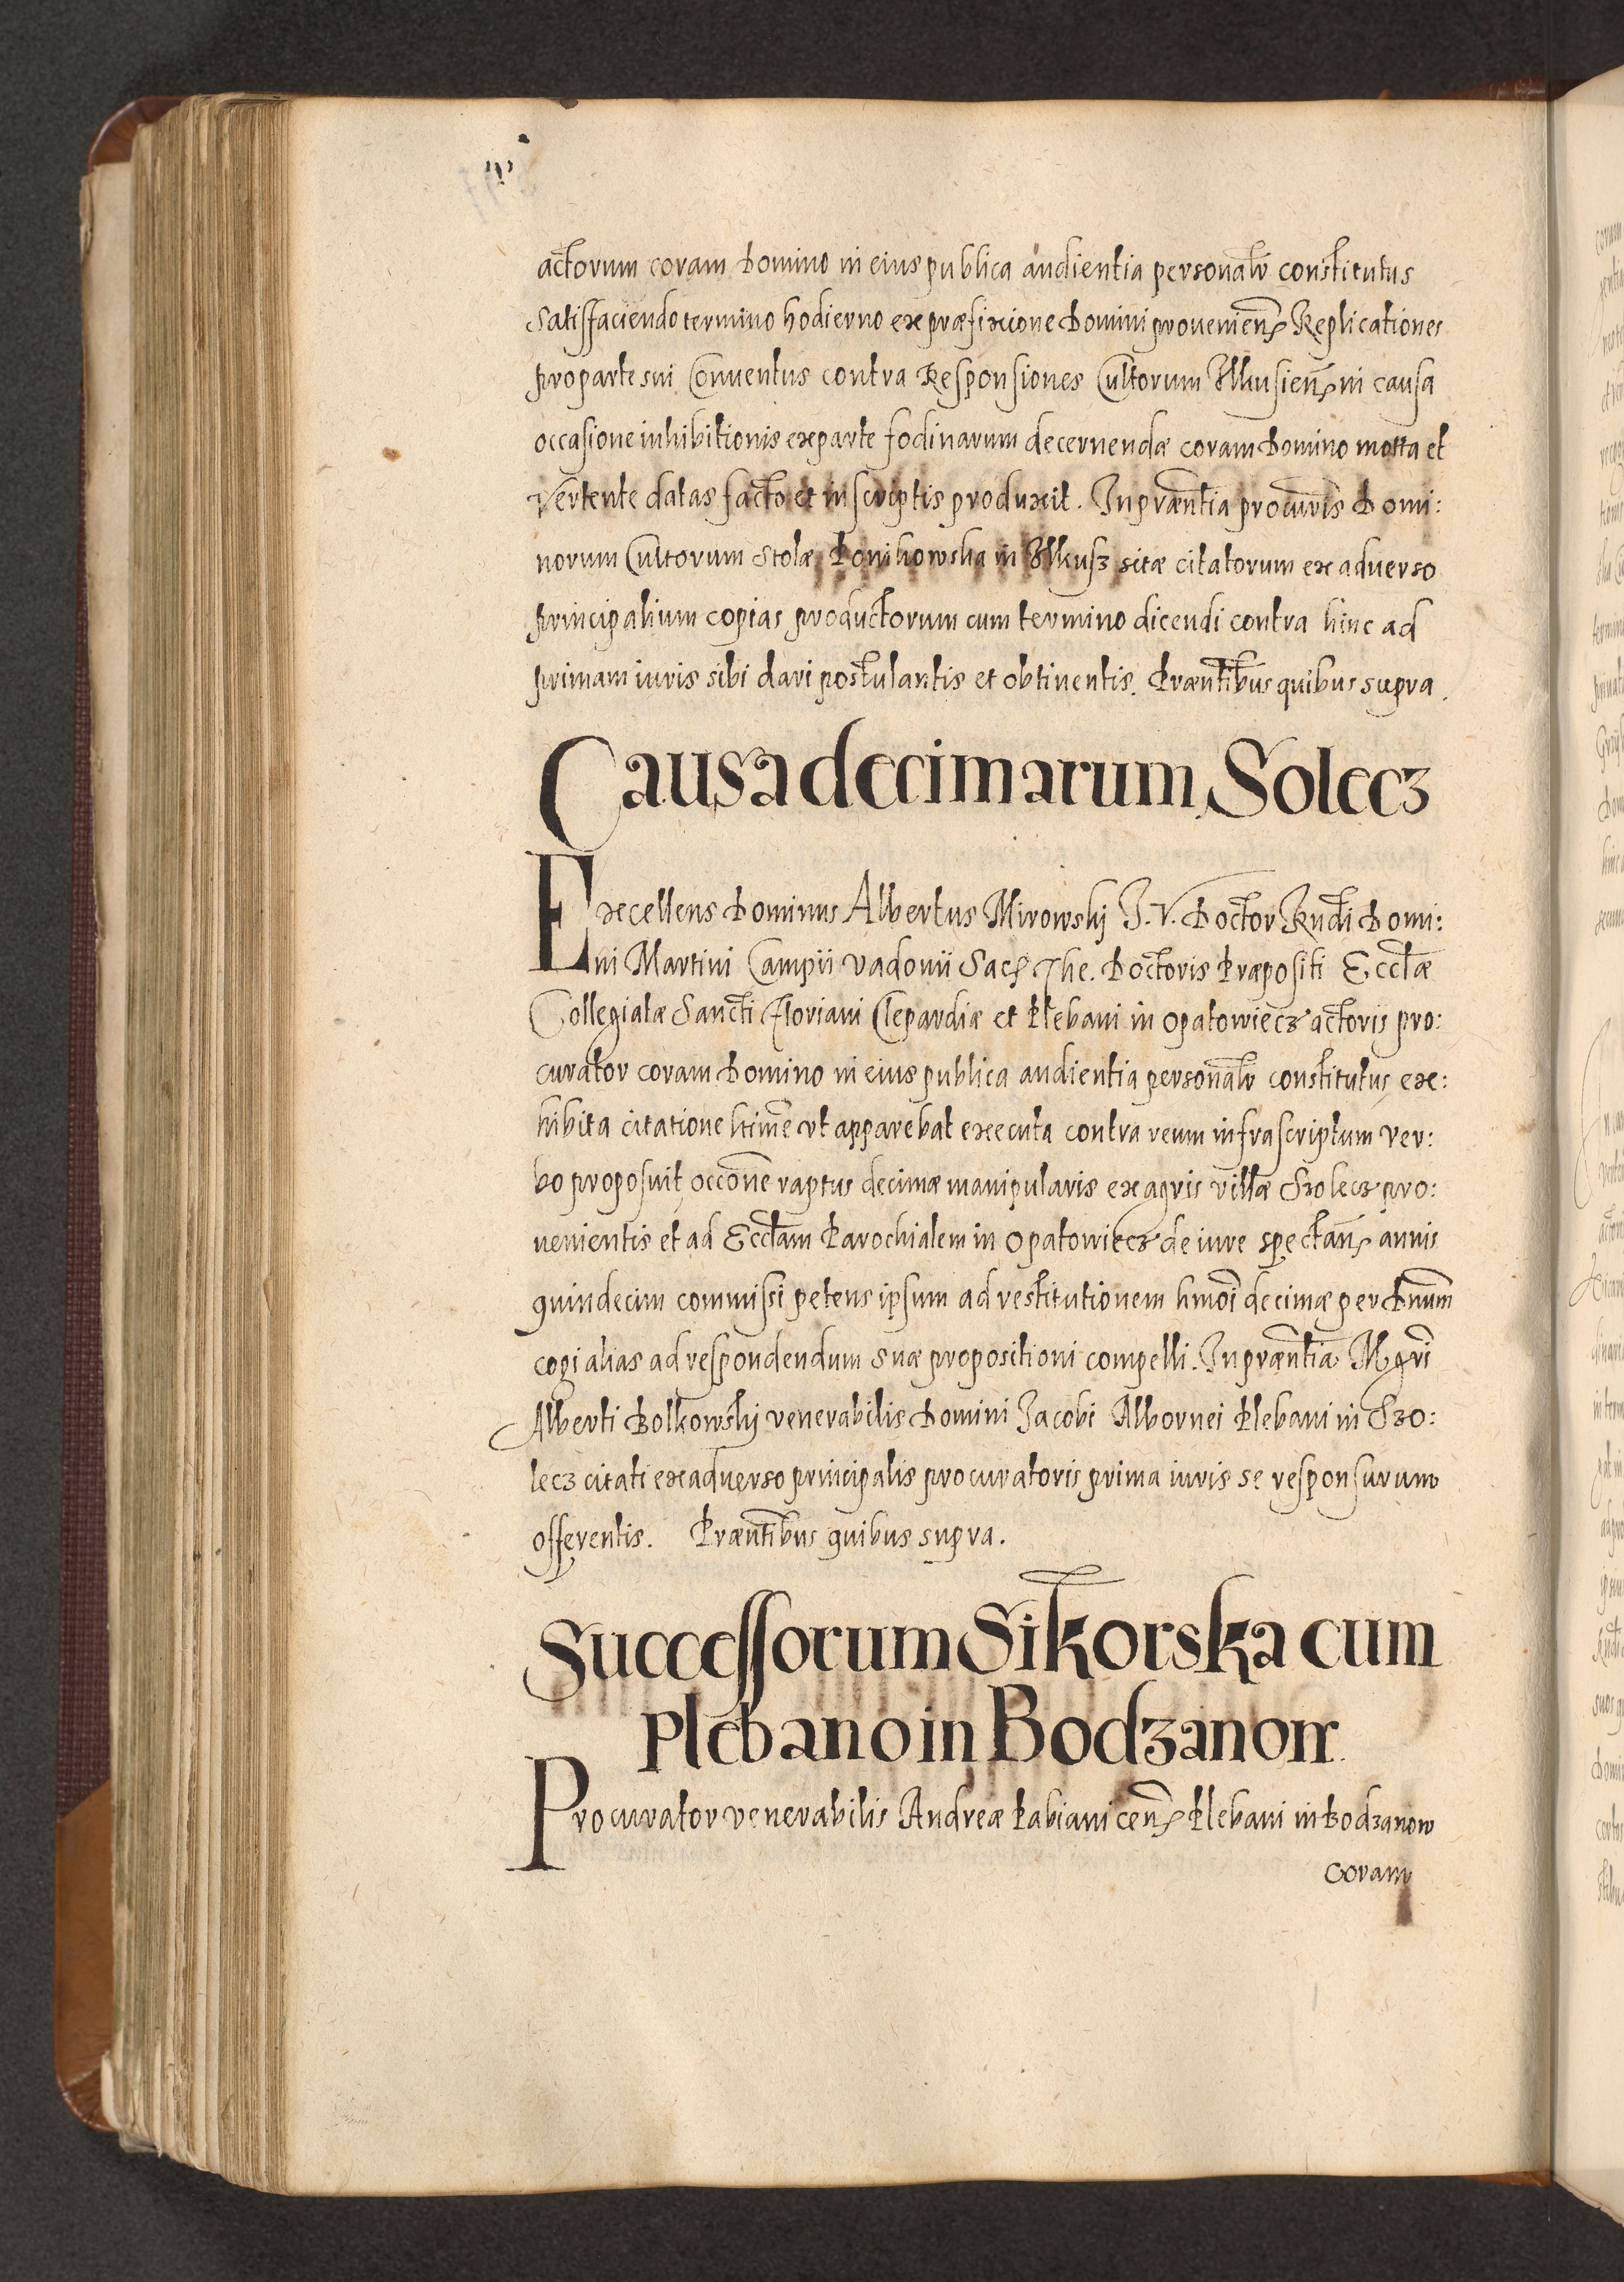 actorum coram Domino in eius publica audientia personalr constitutus
Satisfaciendo termino hodierno ex præfixione Domini provenien Replicationes
pro parte sui Conventus contra Responsiones Cultorum Ilkusien in causa
occasione inhibitionis ex parte fodinarum decernendæ coram Domino mota et
Vertente datas facto et in scriptis produxit. In præntia procuris Domi:
norum Cultorum Stolæ Ponikowska in Ilkusz sitæ citatorum ex adverso
principalium copias productorum cum termino dicendi contra hinc ad
primam iuris sibi dari postulantis et obtinentis. Præntibus quibus supra.
Causa decimarum Solecz
Excellens Dominus Albertus Mirowskj I. V. Doctor Rndi Domi:
ni Martini Campii Vadovii Sac The. Doctoris Præpositi Ecclæ
Collegiatæ Sancti Floriani Clepardiæ et Plebani in Opatowiecz actoris pro:
curator coram Domino in eius publica audientia personalr constitutus, ex:
hibita citatione ltime ut apparebat executa contra reum infrascriptum ver:
bo proposuit, occone raptus decimæ manipularis ex agris villæ Szolecz pro:
venientis et ad Ecclam Parochialem in Opatowiecz de iure spectan annis
quindecim commissi petens ipsum ad restitutionem hmoi decimæ per Dnum
cogi alias ad respondendum suæ propositioni compelli. In præntia Mgri
Alberti Bolkowskj venerabilis Domini Jacobi Albornei Plebani in Szo:
lecz citati ex adverso principalis procuratoris prima iuris se responsurum
offerentis. Præntibus quibus supra.
Successorum Sikorska cum
Plebano in Bodzanow
Procurator venerabilis Andreæ Fabiani cen Plebani in Bodzanow
Coram